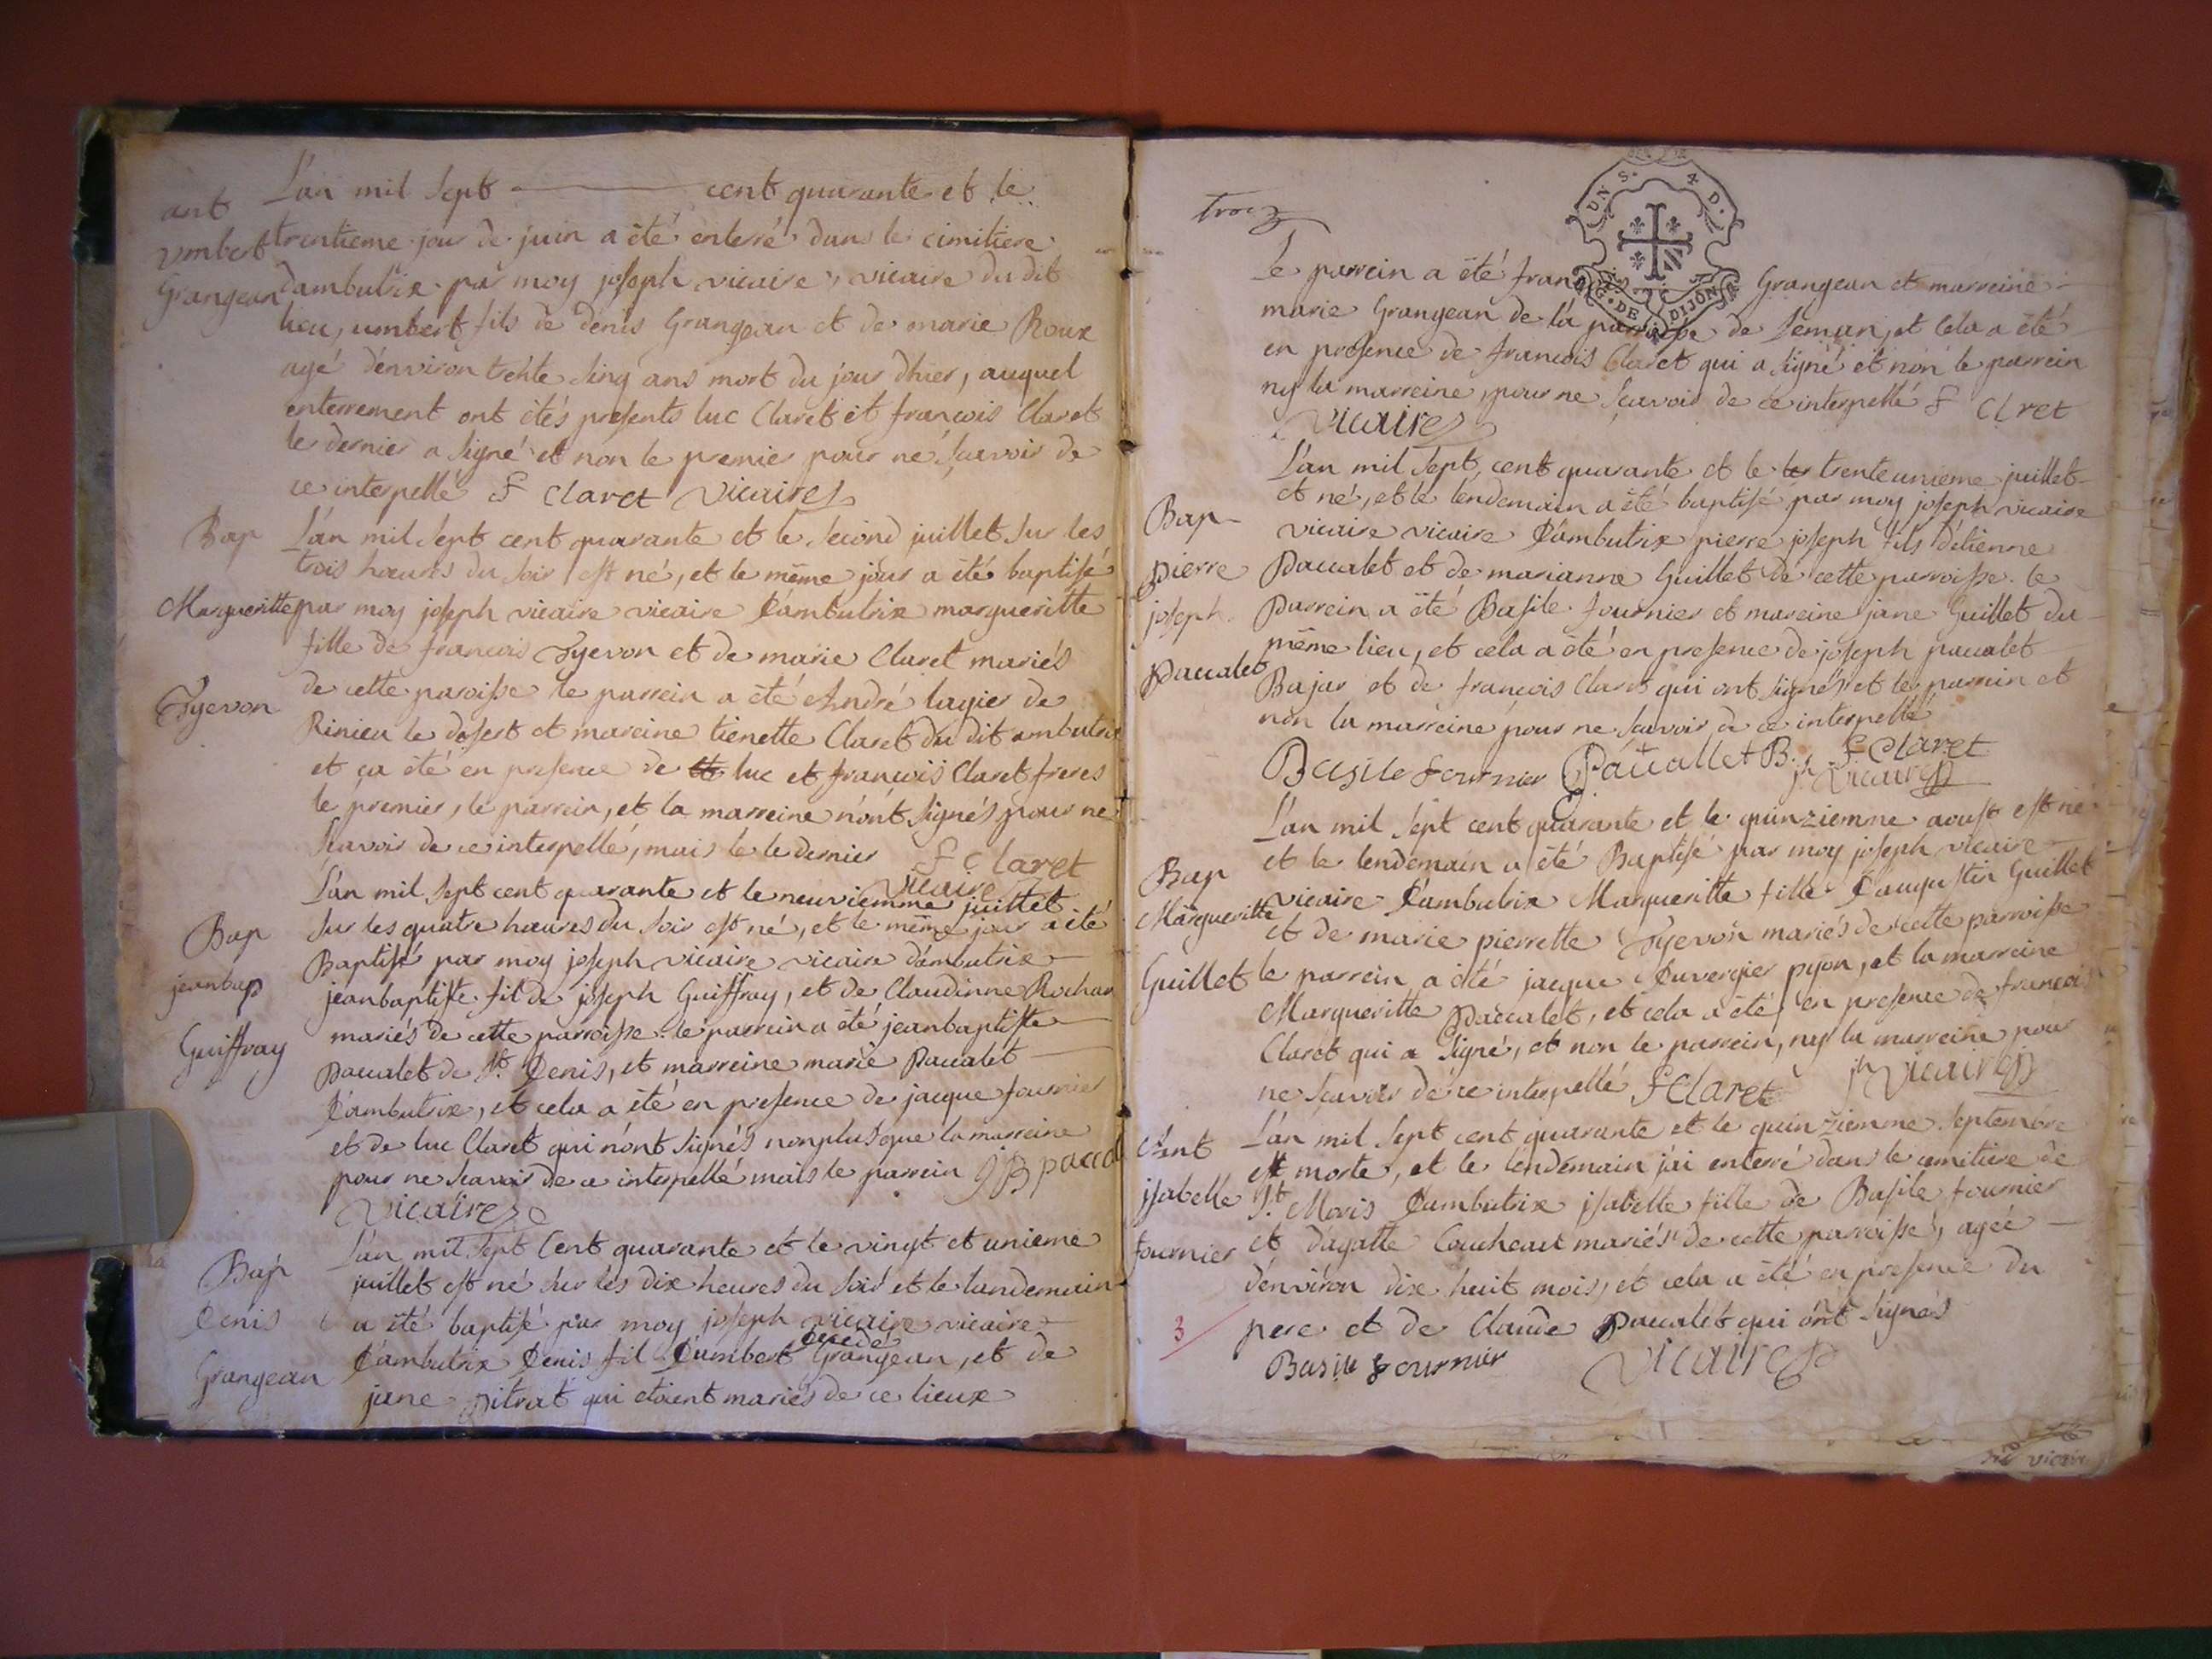 ant
umbert
Grangean
L'an mil sept cent quarante et le
trentieme jour de juin a été enterré dans le cimitiere
dambutrix par moy joseph vicaire, vicaire du dit
lieu, umbert fils de denis Grangean et de marie Roux
agé d'environ trente sinq ans mort du jour dhier, auquel
enterrement ont étés presents luc Claret et françois Claret
le dernier a signé et non le premier pour ne sçavoir de
ce interpellé F Claret vicaire
Bap
Margueritte
Tyevon
L'an mil sept cent quarante et le second juillet sur les
trois hœures du soir est né, et le même jour a été baptisé
par moy joseph vicaire vicaire d'ambutrix margueritte
fille de francois Tyevon et de marie Claret mariés
de cette paroisse le parrein a été André lagier de
Rinieu le desert et mareine tienette Claret du dit ambutrix
et ça été en presence de luc et francois Claret freres
le premier, le parrein, et la marreine n'ont signés pour ne
sçavoir de ce interpellé, mais le le dernier F Claret
vicaire
Bap
jeanbap
Guiffray
L'an mil sept cent quarante et le neuviemme juillet
sur les quatre hœures du soir est né, et le même jour a été
Baptisé par moy joseph vicaire vicaire d'ambutrix
jeanbaptiste fil de joseph Guiffray, et de Claudinne Rochas
mariés de cette parroisse le parrein a été jeanbaptiste
paccalet de St. Denis, et marreine marie paccalet
d'ambutrix, et cela a été en presence de jacque fournier
et de luc Claret qui n'ont signés non plus que la marreine
pour ne sçavoir de ce interpellé mais le parrein JB paccal
vicaire
Bap
Denis
Grangean
L'an mil sept cent quarante et le vingt et unieme
juillet est né sur les dix heures du soir et le landemain
a été baptisé par moy joseph vicaire vicaire
decedé
d'ambutrix Denis fil d'umbert Grangean, et de
jane pitrat qui etoient mariés de ce lieux
trois
UN S. 4 D.
G. DE DIJON
Le parrein a été francois Grangean et marreine
marie Grangean de la parroisse de Leman, et cela a été
en presence de francois Claret qui a signé et non le parrein
ny la marreine, pour ne sçavoir de ce interpellé F Clret
vicaire
Bap
pierre
joseph
paccalet
L'an mil sept cent quarante et le trente unieme juillet
et né, et le lendemain a été baptisé par moy joseph vicaire
vicaire vicaire d'ambutrix pierre joseph fils d'etienne
paccalet et de marianne Guillet de cette parroisse. le
parrein a été Basile fournier et mareine jane Guillet du
même lieu, et cela a été en presence de joseph paccalet
Bajat et de francois Claret qui ont signés et le parrein et
non la marreine pour ne sçavoir de ce interpellé
Basile fournier Paccallet B. F. Claret
jh vicaire
Bap
Margueritte
Guillet
L'an mil sept cent quarante et le quinziemne aoust est né
et le lendemain a été Baptisé par moy joseph vicaire
vicaire d'ambutrix Margueritte fille d'augustin Guillet
et de marie pierrette Tyevon mariés de cette parroisse
le parrein a été jacque Duvergier pyon, et la marreine
Margueritte paccalet, et cela a été en presence de francois
Claret qui a signé, et non le parrein, ny la marreine pour
ne sçavoir de ce interpellé F Claret jh vicaire
Ant
isabelle
fournier
L'an mil sept cent quarante et le quinziemne septembre
est morte, et le lendemain j'ai enterré dans le cemitiere de
St. Moris d'ambutrix isabelle fille de Basile fournier
et d'agatte mariés de cette parroisse, agée
d'environ dix huit mois, et cela a été en presence du
pere et de Claude paccalet qui ont signés
3
Basile fournier vicaire